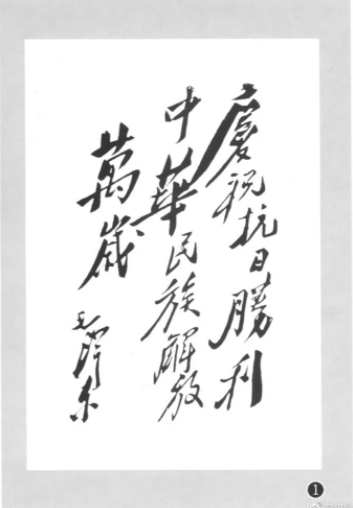 慶祝抗日勝利
中華民族解放
萬歲
毛澤东
❶